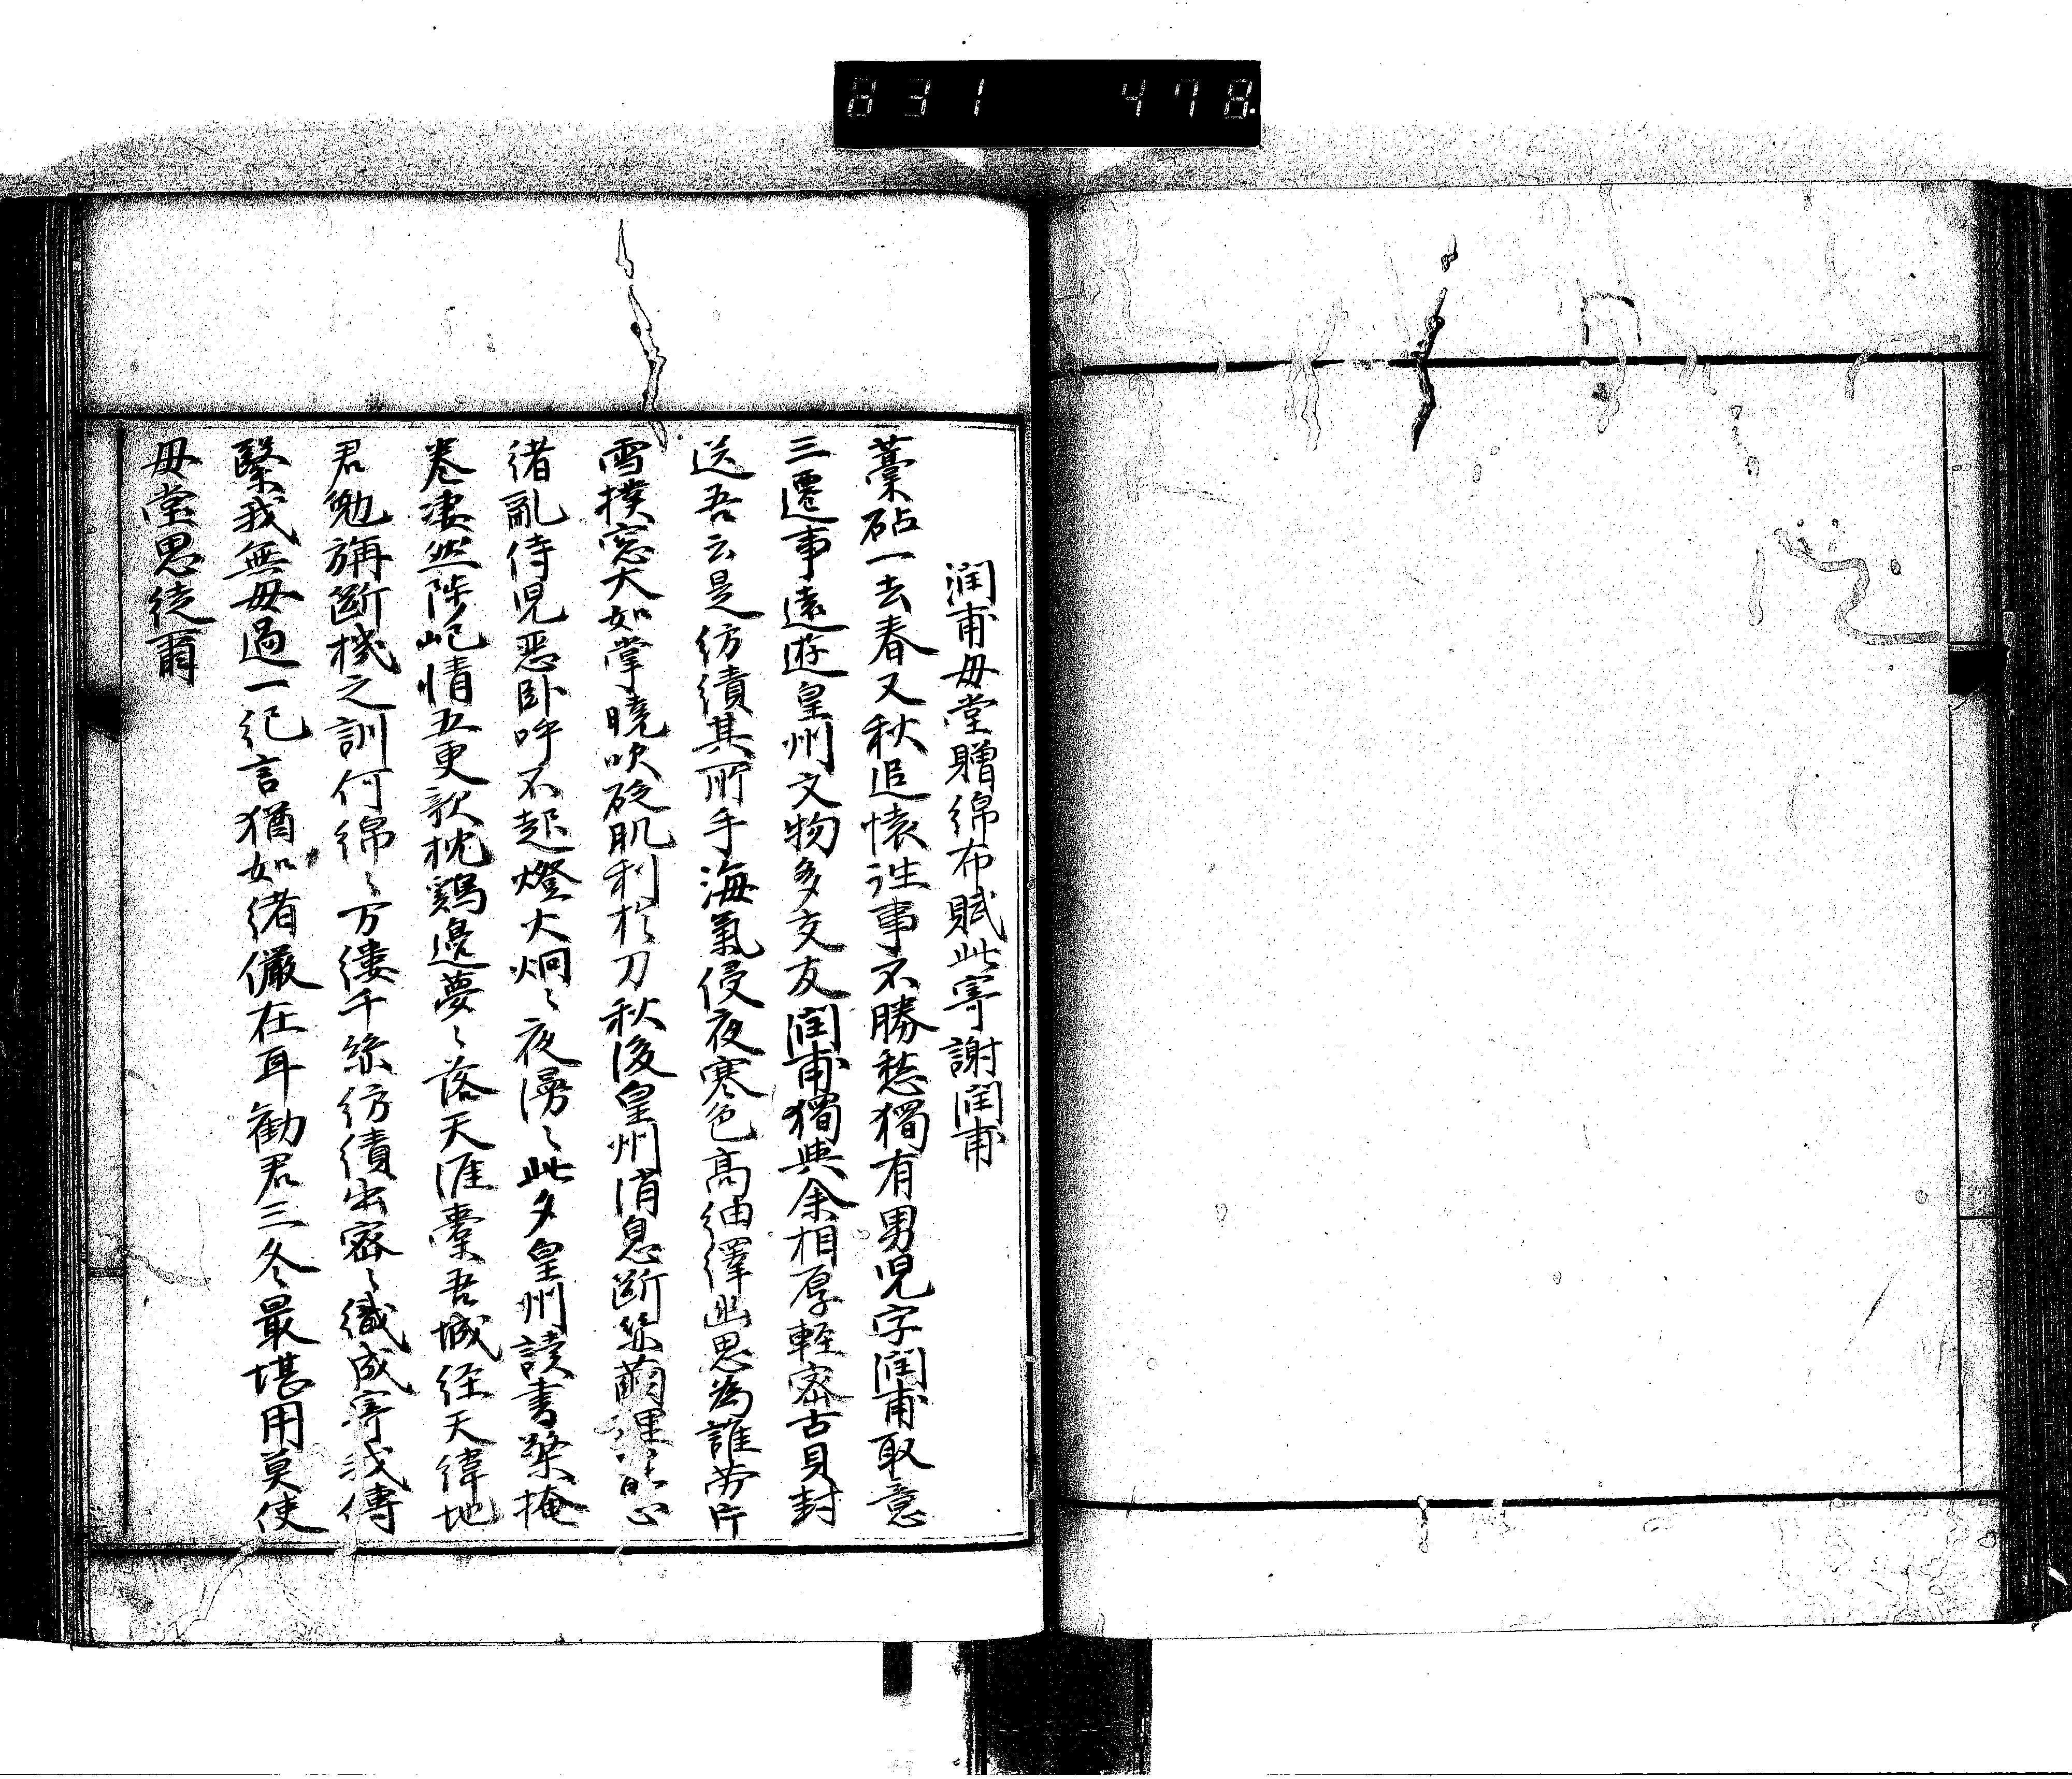 831 478
潤甫母堂贈綿布賦此寄謝潤甫
藁砧一去春又秋追懷往事不勝愁獨有男児字潤甫取意
三遷事遠遊皇州文物多交友潤甫獨與余相厚軽密古貝封
送吾云是紡績其所手海氣侵夜寒色高紬繹幽思為誰労片
雪撲窓大如掌曉吹砭肌利於刀秋後皇州消息断繭裡心
緒亂侍児悪臥呼不起燈火炯〻夜漫〻此夕皇州読書祭掩
巻凄然陟屺情五更欹枕鶏邊夢〻落天涯橐吾城経天緯地
君勉旃断機之訓何綿〻万縷千絲紡績出密〻織成寄我傳
繄我無母過一紀言猶如緒儼在耳勧君三冬最堪用莫使
母堂思徒爾